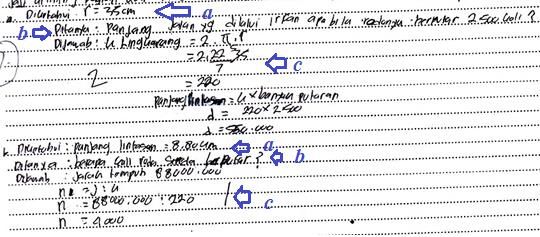 a. Diketahui r = 35 cm a
b Ditanya : Panjang jalan yg dilalui irfan apabila rodanya berputar 2.500 kali ?
Dijawab : k Lingkaran = 2 . π . r
= 2.22 35
7
c
2
= 220
Panjang lintasan = k x banyak putaran
d = 220 x 2500
d = 550.000
b. Diketahui : panjang lintasan = 8.80 km a
Ditanya : berapa kali roda sepeda berputar ? b
Dijawab : Jarak tempuh 88000.000
n = j : k
n = 88000.000 : 220 c
n = 4000